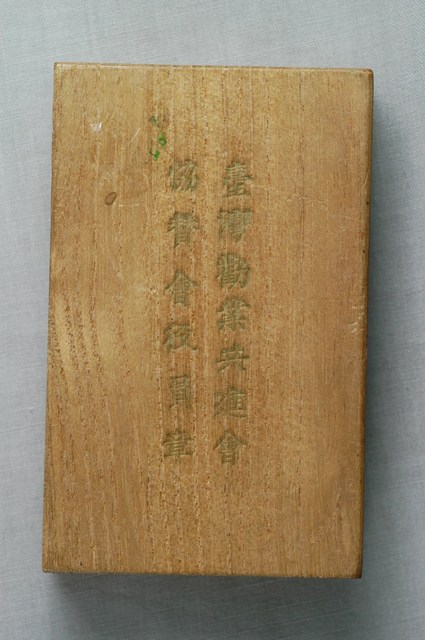 臺灣勸業共進會
協贊會役員章